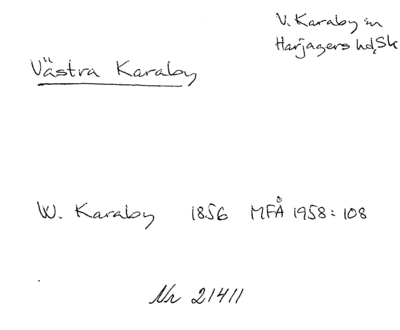 V. Karaby sn
Harjagers hd, Sk
Västra Karaby
W. Karaby 1856 MFÅ 1958:108
Nr 21411